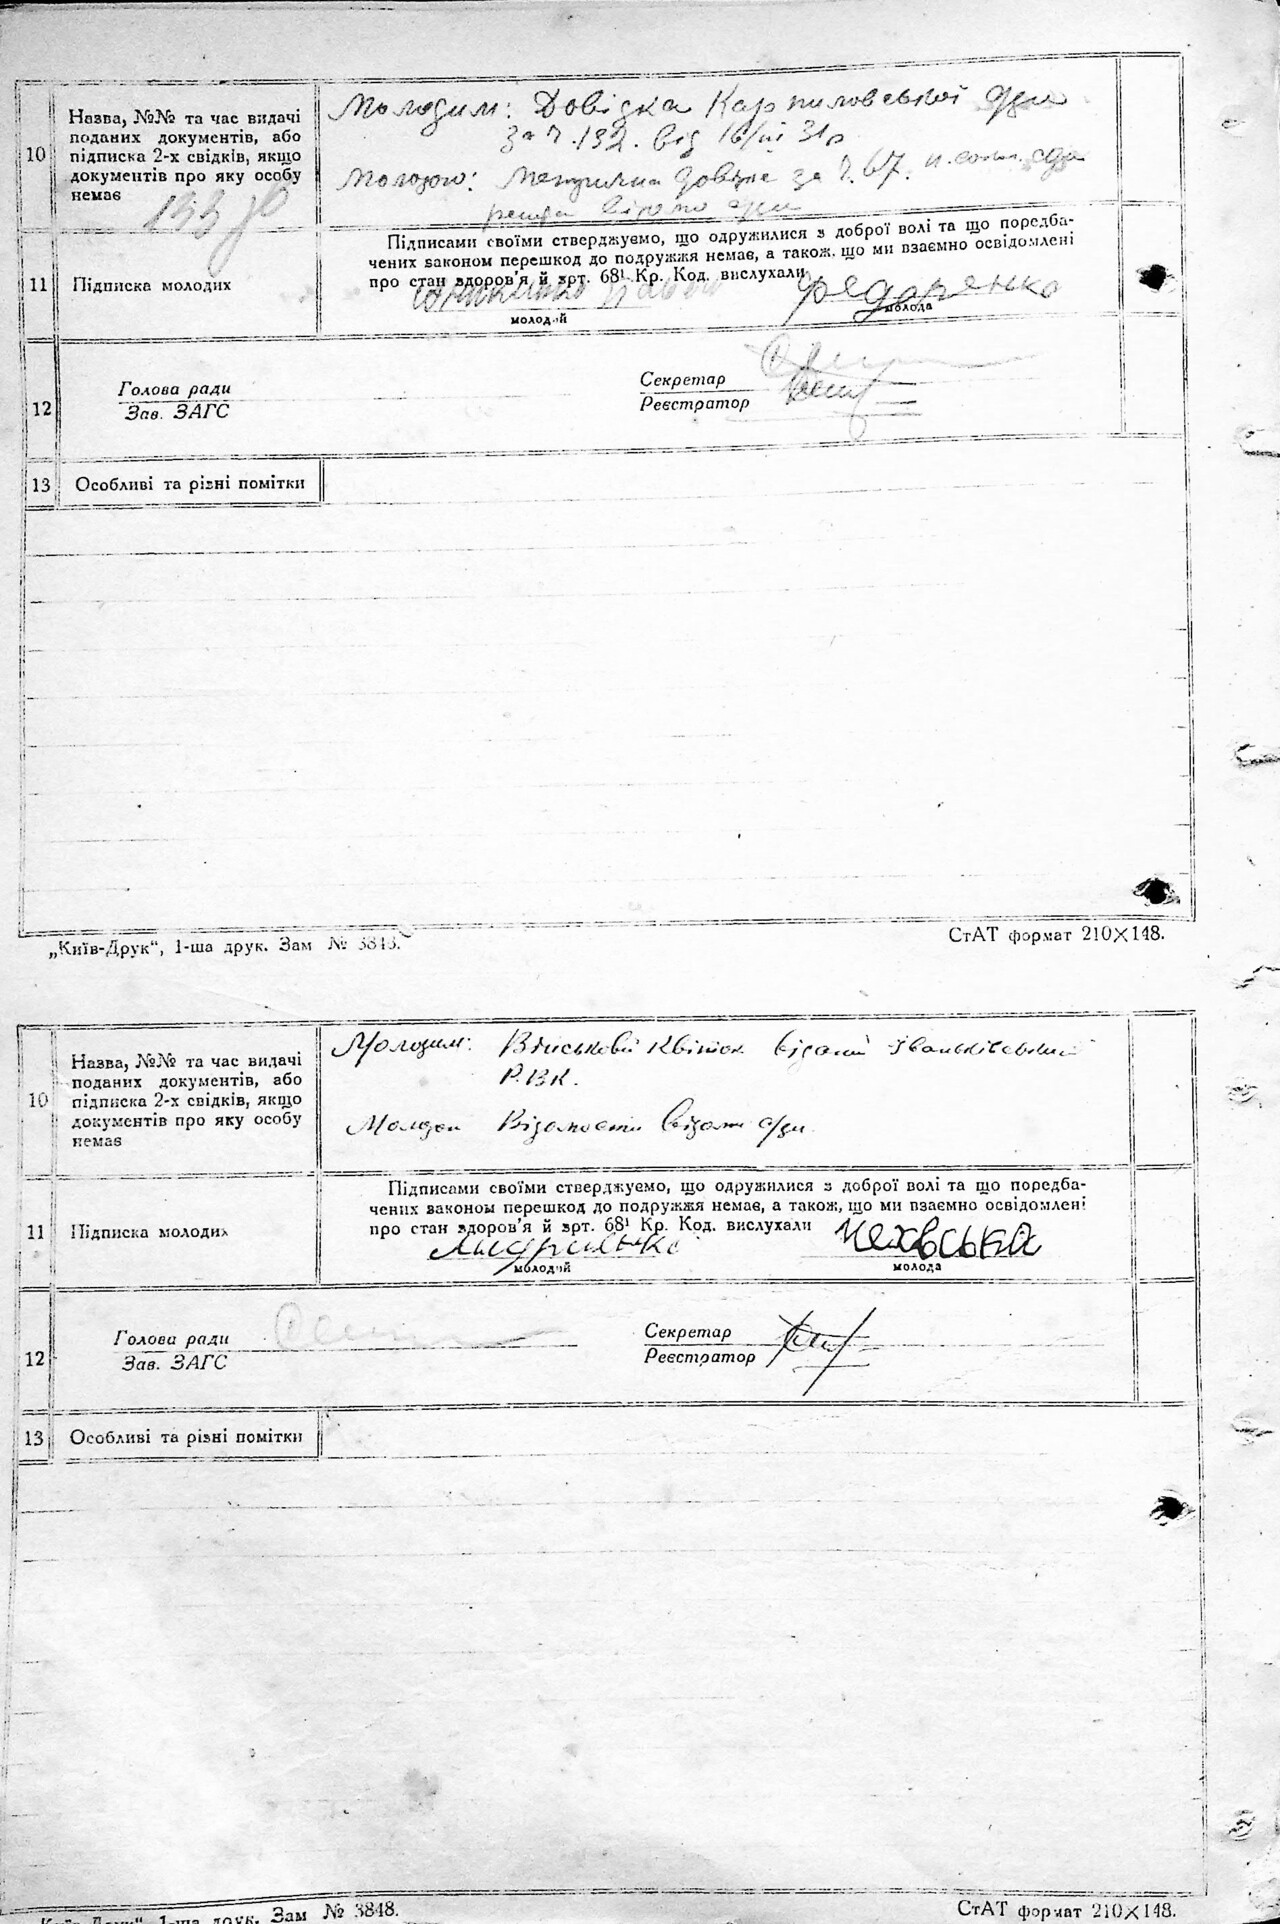 10
Назва, №№ та час видачі
поданих документів, або
підписка 2-х свідків, якщо
документів про яку особу
немає
Молодим: Довідка Карпиловської с/ди
за ч. 132. від 16/III 31р
Молодою: довідка за ч. 67.
видано с/ди
11
Підписка молодих
Підписами своїми стверджуємо, що одружилися з доброї волі та що поредба-
чених законом перешкод до подружжя немає, а також, що ми взаємно освідомлені
про стан здоров'я й арт. 68¹ Кр. Код. вислухали
Федоренко
молодий
молода
12
Голова ради
Зав. ЗАГС
Секретар
Реєстратор
13
Особливі та різні помітки
„Київ-Друк“, 1-ша друк. Зам № 3848.
СтАТ формат 210×148.
10
Назва, №№ та час видачі
поданих документів, або
підписка 2-х свідків, якщо
документів про яку особу
немає
Молодим: Військовий квіток виданий Іваньківський
Р.В.К.
Молодою Відомости видані с/ди.
11
Підписка молодих
Підписами своїми стверджуємо, що одружилися з доброї волі та що поредба-
чених законом перешкод до подружжя немає, а також, що ми взаємно освідомлені
про стан здоров'я й арт. 68¹ Кр. Код. вислухали
Чехівська
молодий
молода
12
Голова ради
Зав. ЗАГС
Секретар
Реєстратор
13
Особливі та різні помітки
„Київ-Друк“, 1-ша друк. Зам № 3848.
СтАТ формат 210×148.